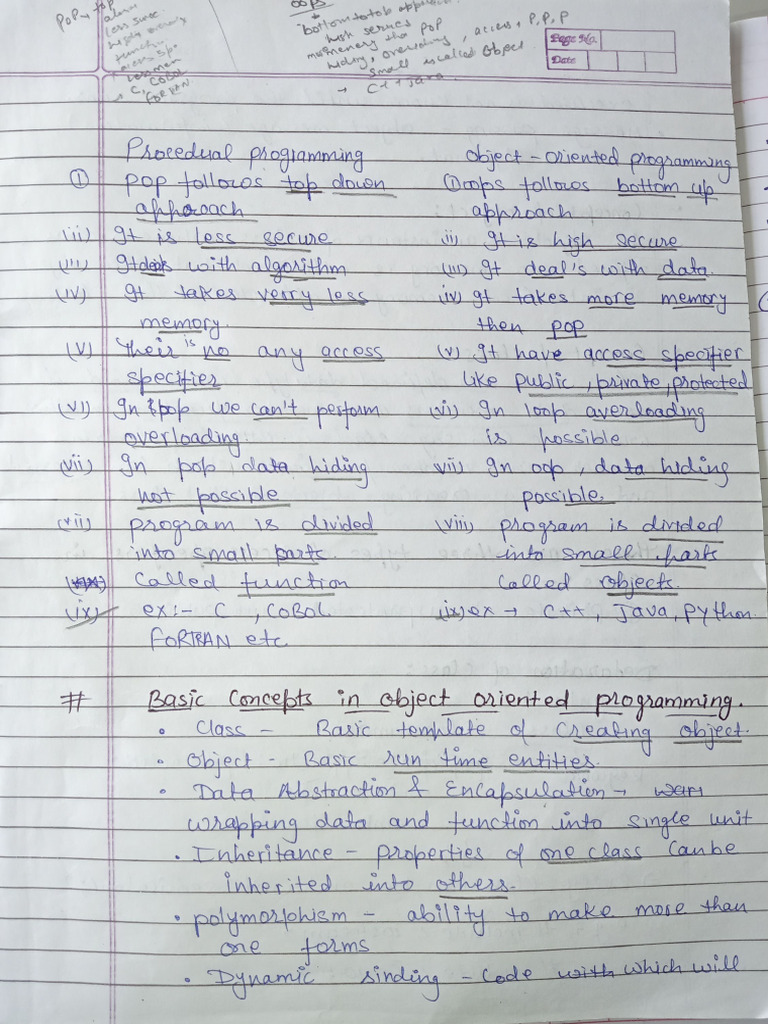 POP → top
alorm
less secure
highly
function
access spe
C, COBOL
FORTRAN
OOPS
bottom to top
high serves
more memory tha POP
hiding, overloading, access, P, P, P
small is called Object
→ C++ Java
Page No.
Date
Procedual programming object-oriented programming
① POP follows top down ① oops follows bottom up
approach approach
(ii) It is less secure ii) It is high secure
(iii) It deals with algorithm (iii) It deal's with data.
(iv) It takes verry less iv) It takes more memory
memory. then pop
(v) their is no any access (v) It have access specifier
specifier like public, private, protected
(vi) In pop we can't perform (vi) In loop overloading
overloading. is possible
(vii) In pop data hiding vii) In oop, data hiding
not possible possible.
(vii) program is divided viii) program is divided
into small parts. into small parts
called function called objects.
(ix) ex:- C, COBOL (ix) ex → C++, Java, Python.
FORTRAN etc
# Basic Concepts in object oriented programming.
• Class - Basic template of creating object.
• Object - Basic run time entities.
• Data Abstraction & Encapsulation →
wrapping data and function into single unit
• Inheritance - properties of one class canbe
inherited into others.
• polymorphism - ability to make more than
one forms
• Dynamic sinding - code with which will